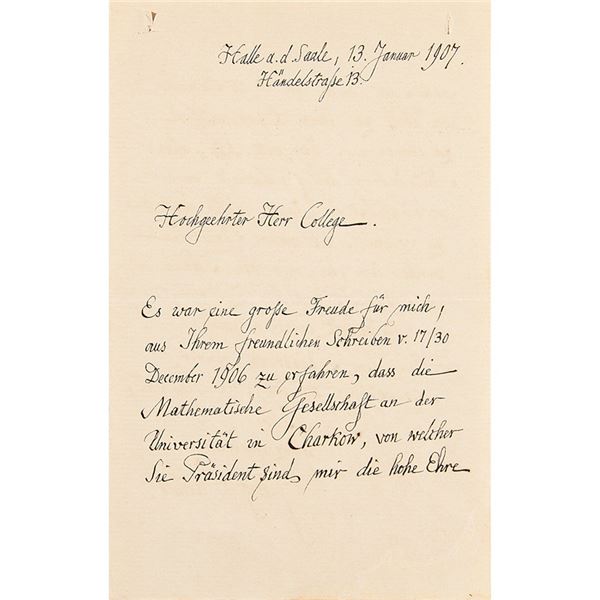 Halle a. d. Saale, 13. Januar 1907.
Händelstraße 13.
Hochgeehrter Herr College.
Es war eine große Freude für mich,
aus Ihrem freundlichen Schreiben v. 17/30
December 1906 zu erfahren, dass die
Mathematische Gesellschaft an der
Universität in Charkow, von welcher
Sie Präsident sind, mir die hohe Ehre